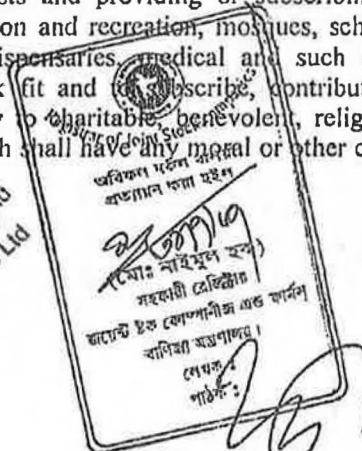 and providing or subscribin
ion and recreation, mosques, sch
ispensaries, medical and such
k fit and to subscribe, contribut
y to charitable, benevolent, relig
h shall have any moral or other c
Ltd
of Joint Stock Companies
অবিকল নকল বলিয়া
প্রত্যায়ন করা হইল
(মোঃ নাইমুল হক)
সহকারী রেজিষ্ট্রার
জয়েন্ট ষ্টক কোম্পানীজ এন্ড ফার্মস
বাণিজ্য মন্ত্রণালয়।
লেখক :
পাঠক :